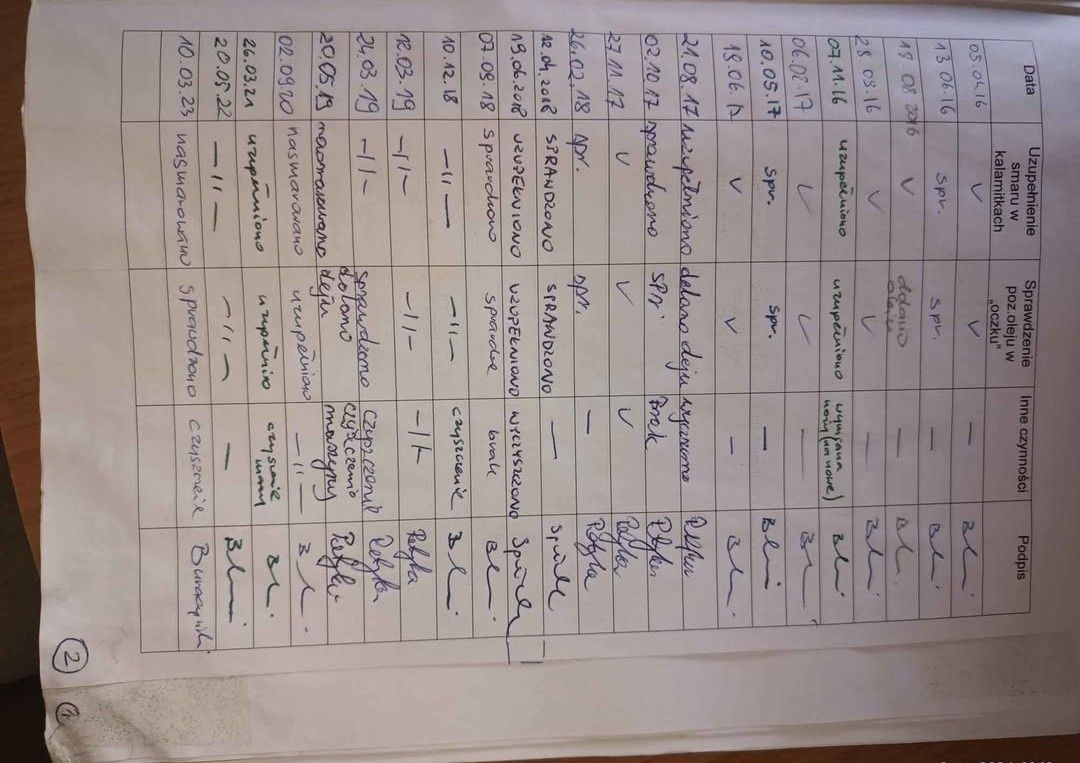 Data Uzupełnienie smaru w kalamitkach Sprawdzenie poz.oleju w „oczku" Inne czynności Podpis
05.04.16 V V —
13.06.16 spr. spr. —
18 08 2016 V —
28 09.16 V V —
07.11.16 uzupełniono uzupełniono wymiana
06.02.17 V V —
10.05.17 spr. spr. —
18.06.17 V V —
21.08.17 uzupełniono dolano oleju
02.10.17 sprawdzono spr. brak
27.11.17 V V V Petyka
26.02.18 spr. spr. — Petyka
12.04.2018 SPRAWDZONO SPRAWDZONO —
19.06.2018 UZUPEŁNIONO UZUPEŁNIONO WYCZYSZCZONO
07.09.18 sprawdzono brak
10.12.18 —11— —11— czyszczenie
12.03.19 —11— —11— —11— Petyka
24.03.19 —11— sprawdzono czyszczenie Petyka
20.05.19 nasmarowano dolano oleju czyszczenie maszyny
02.09.20 nasmarowano uzupełniono —11—
26.03.21 uzupełniono uzupełniono
20.05.22 —11— —11— —
10.03.23 nasmarowano sprawdzono czyszczenie
2
1